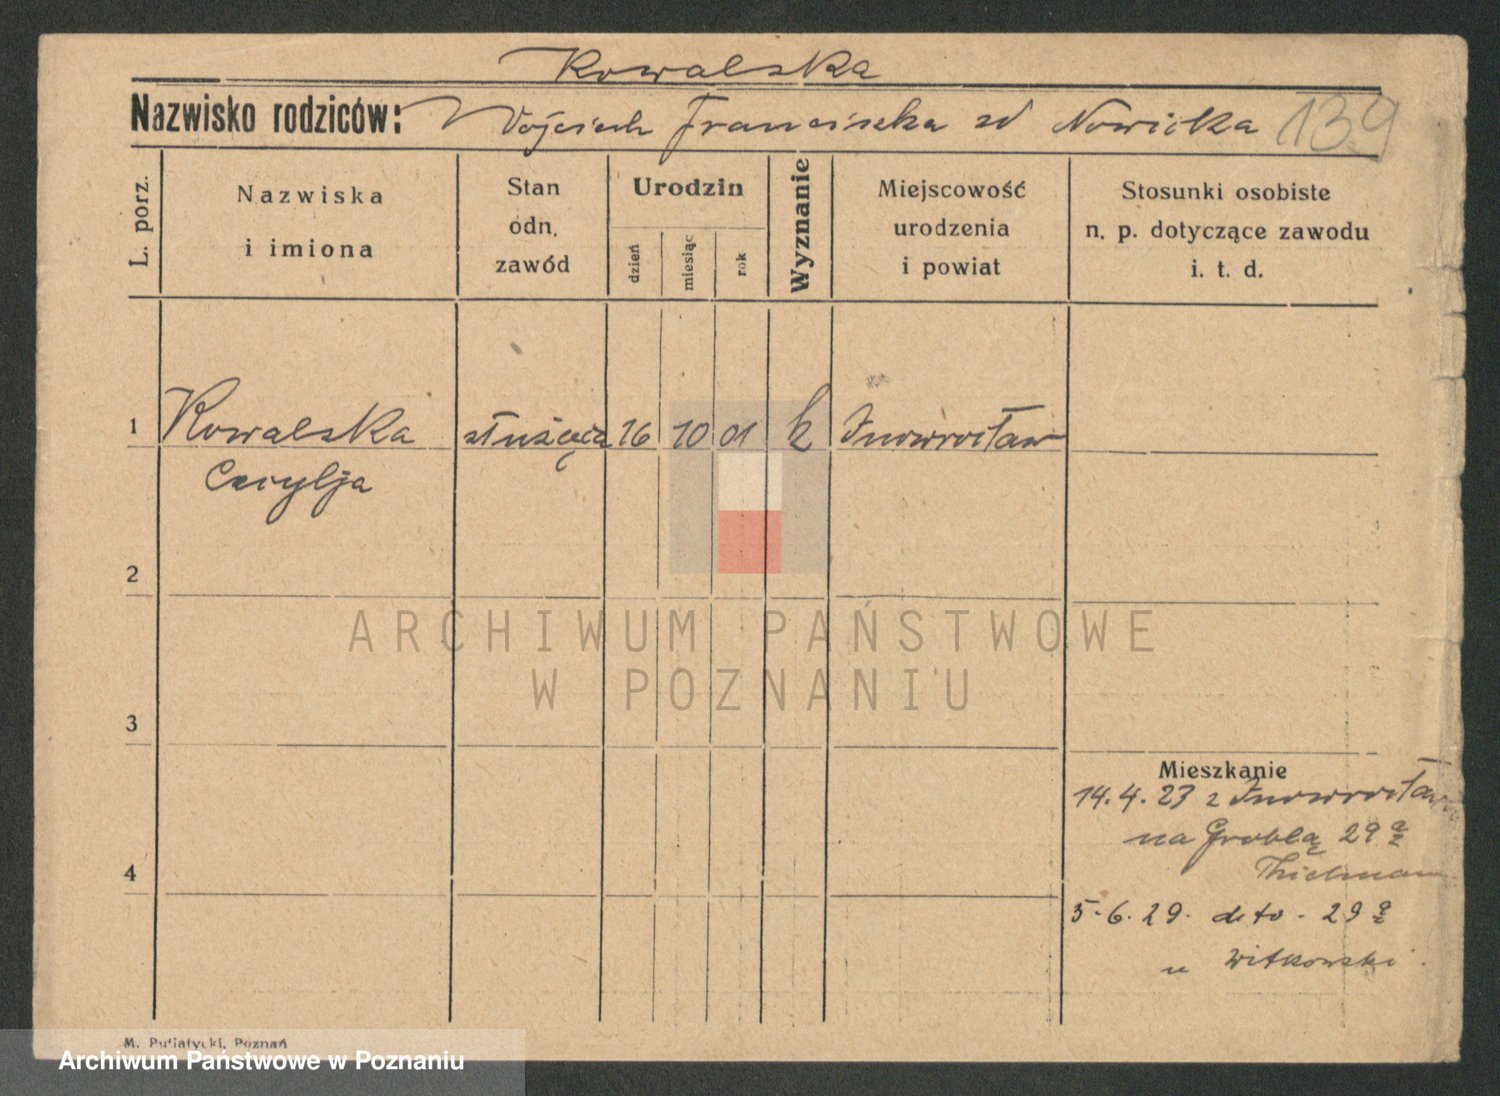 Kowalska
Nazwisko rodziców: Wojciech Franciszka zd Nowicka 139
L. porz.
Nazwiska
i imiona
Stan
odn.
zawód
Urodzin
dzień
miesiąc
rok
Wyznanie
Miejscowość
urodzenia
i powiat
Stosunki osobiste
n. p. dotyczące zawodu
i. t. d.
1 Kowalska służąca 16 10 01 k Inowrocław
Cecylja
2
ARCHIWUM PAŃSTWOWE
W POZNANIU
3
Mieszkanie
14.4.23 z Inowrocław
na Groblą 29
4
Thielmann
5.6.29. deto - 29
u Witkowski
M. Putiatycki, Poznań
Archiwum Państwowe w Poznaniu